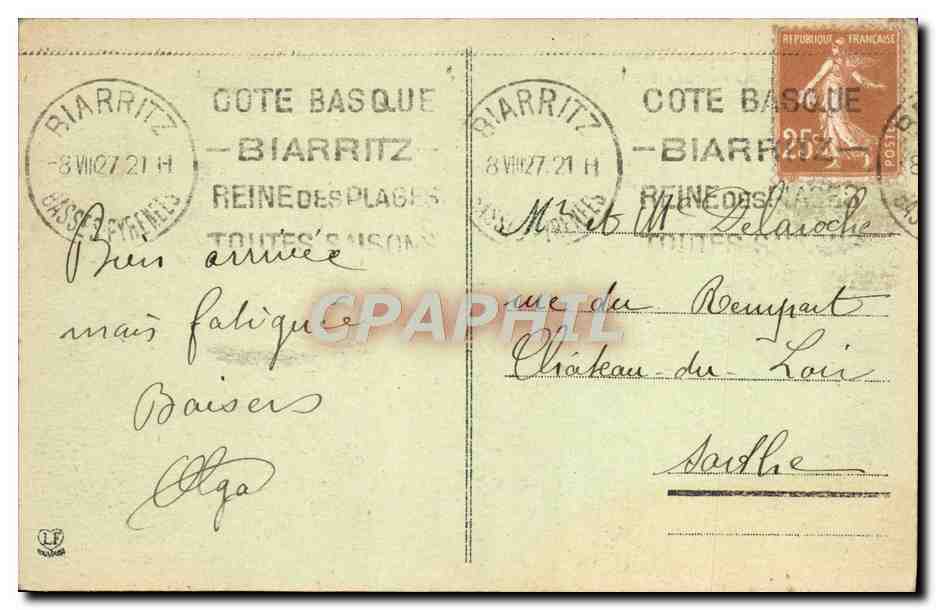 BIARRITZ
8 VIII 27. 21 H
BASSES PYRENEES
COTE BASQUE
—BIARRITZ—
REINE DES PLAGES
TOUTES SAISONS
BIARRITZ
8 VIII 27. 21 H
BASSES PYRENEES
COTE BASQUE
—BIARRITZ—
REINE DES PLAGES
TOUTES
REPUBLIQUE FRANÇAISE
25c
POSTES
Bien arrivée
mais fatiguée
Baisers
Olga
Mr et Me Delaroche
rue du Rempart
Château-du-Loir
Sarthe
LF
TOULOUSE
CPAPHIL